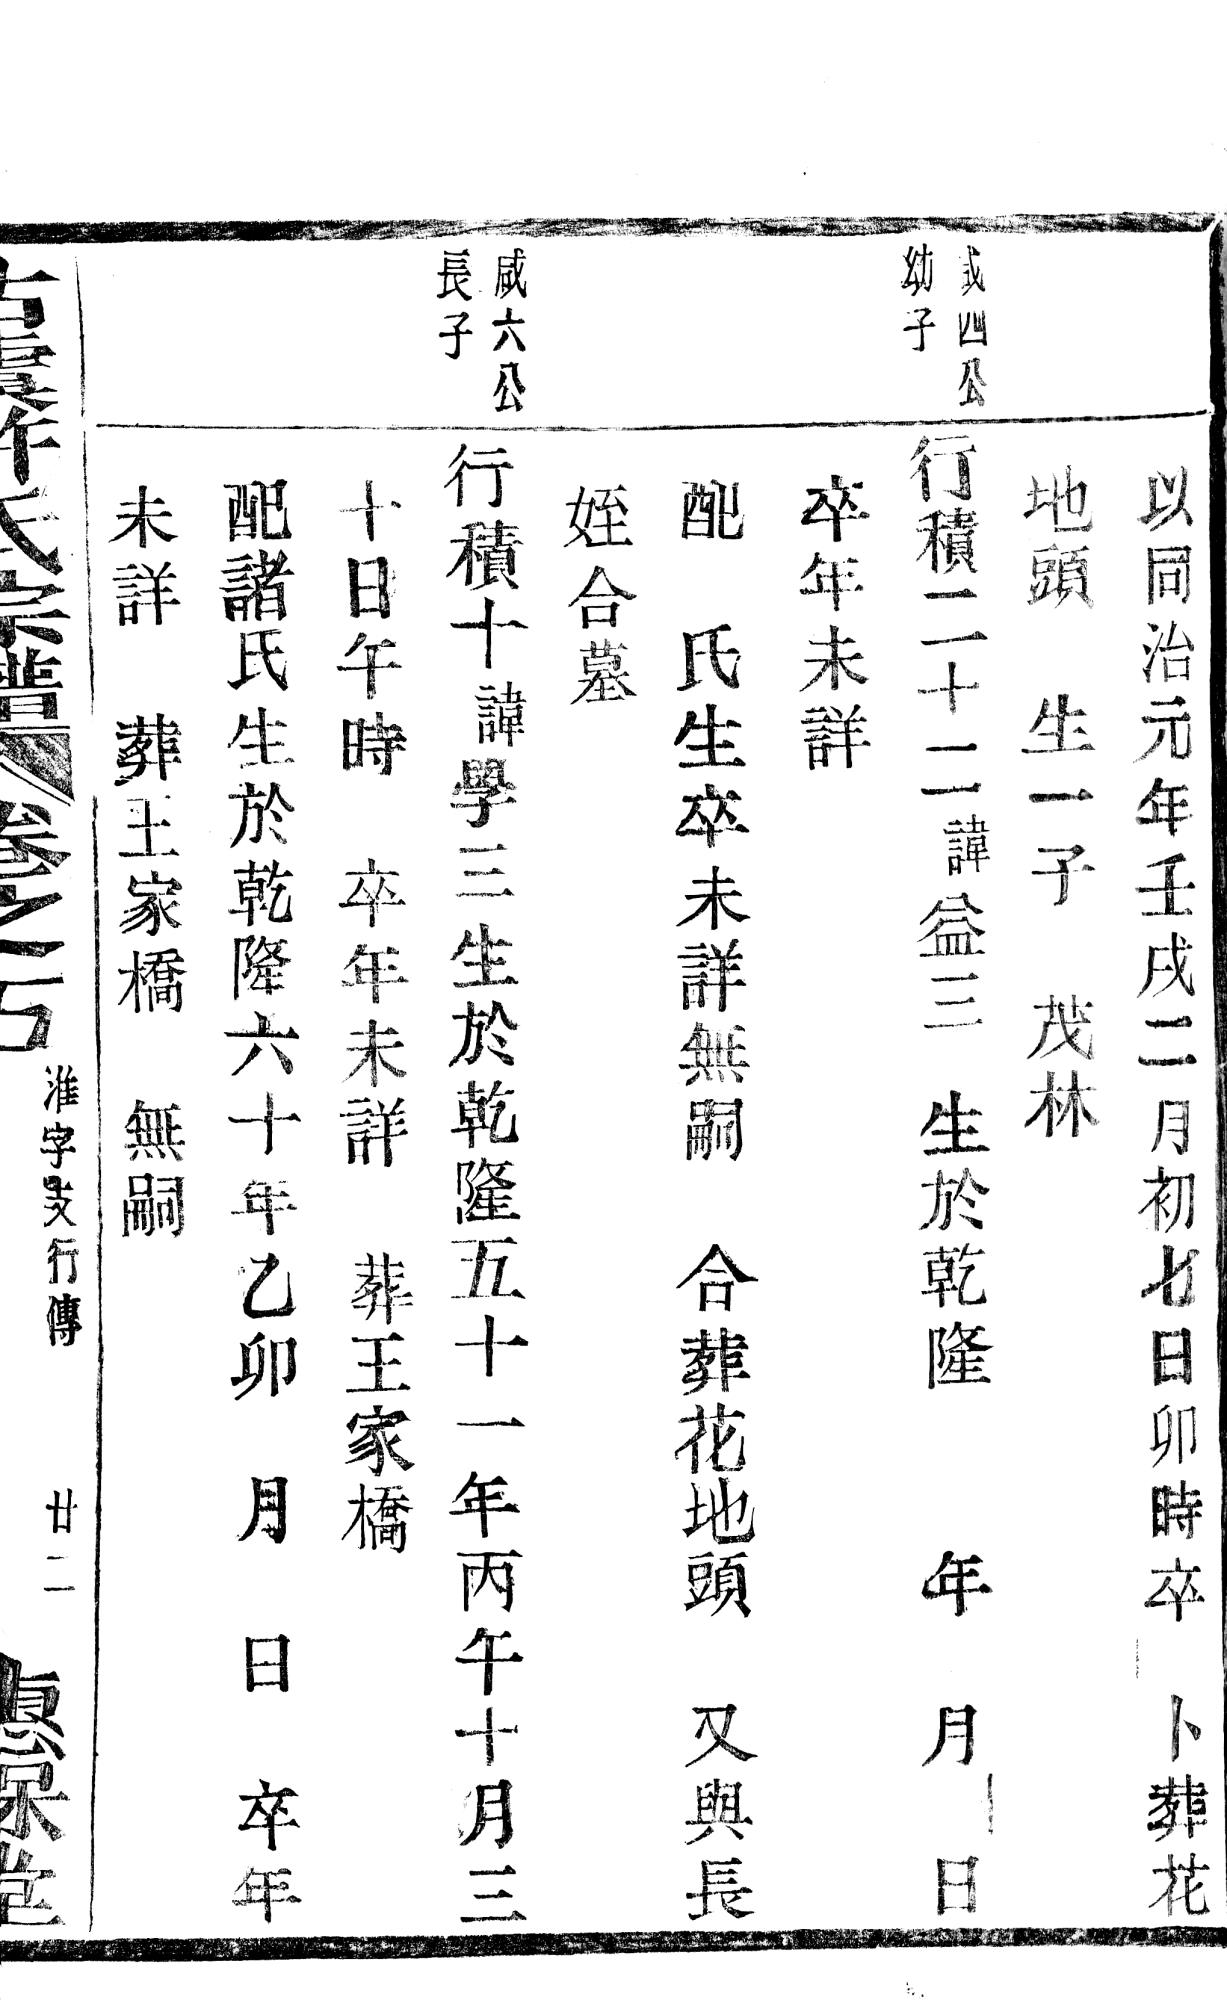 以同治元年壬戌二月初七日卯時卒　卜葬花
地頭　生一子　茂林
咸四公
幼子
行積二十二諱益三　生於乾隆　年　月　日
卒年未詳
配　氏生卒未詳無嗣　合葬花地頭　又與長
姪合墓
咸六公
長子
行積十諱學三生於乾隆五十一年丙午十月三
十日午時　卒年未詳　葬王家橋
配諸氏生於乾隆六十年乙卯　月　日　卒年
未詳　葬王家橋　無嗣
古虞許氏宗譜　卷之二
淮字支行傳
廿二
惠保堂